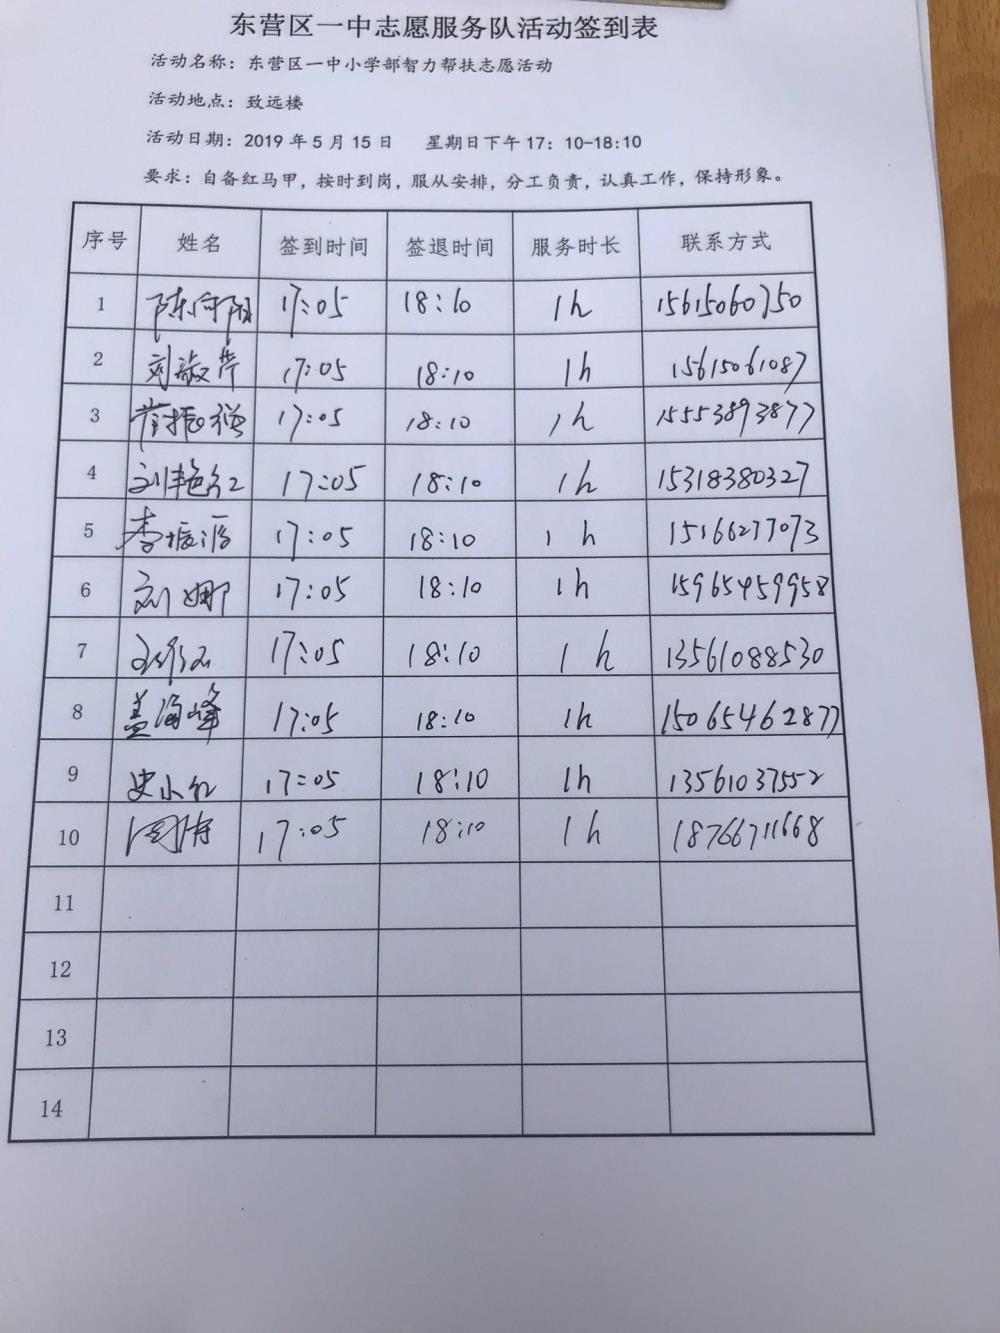 东营区一中志愿服务队活动签到表
活动名称：东营区一中小学部智力帮扶志愿活动
活动地点：致远楼
活动日期：2019 年 5 月 15 日 星期日下午 17：10-18:10
要求：自备红马甲，按时到岗，服从安排，分工负责，认真工作，保持形象。
序号 姓名 签到时间 签退时间 服务时长 联系方式
1 陈向阳 17:05 18:10 1h 15615060750
2 刘淑芹 17:05 18:10 1h 15615061087
3 17:05 18:10 1h 15553893877
4 刘艳红 17:05 18:10 1h 15318380327
5 李振 17:05 18:10 1h 15166277073
6 刘娜 17:05 18:10 1h 15965459958
7 17:05 18:10 1h 13561088530
8 盖海峰 17:05 18:10 1h 15065462877
9 史小红 17:05 18:10 1h 13561037552
10 周涛 17:05 18:10 1h 18766711668
11
12
13
14